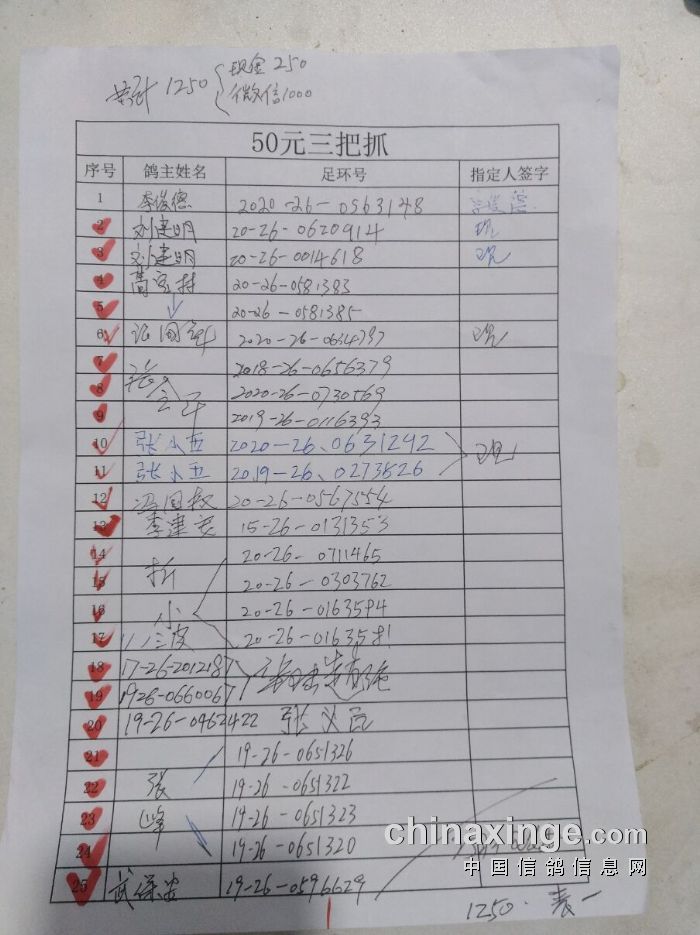 共计 1250 现金250
微信1000
50元三把抓
序号 鸽主姓名 足环号 指定人签字
1 李俊德 2020-26-0563148 李俊德
2 刘建明 20-26-0620914 现
3 刘建明 20-26-0014618 现
4 20-26-0581383
5 20-26-0581385
6 2020-26-0634797 现
7 2018-26-0656379
8 张 2020-26-0730569
9 2019-26-0116393
10 张小五 2020-26、0631292
11 张小五 2019-26、0273826 现
12 冯国权 20-26-0567554
13 李建英 15-26-0131353
14 20-26-0711465
15 折 20-26-0303762
16 小 20-26-0163594
17 20-26-01635
18 17-26-2012187
19 1926-0660067
20 19-26-0462422 张
21 19-26-0651326
22 张 19-26-0651322
23 峰 19-26-0651323
24 19-26-0651320
25 武保安 19-26-0596629
chinaxinge.com
中国信鸽信息网
1250. 表一